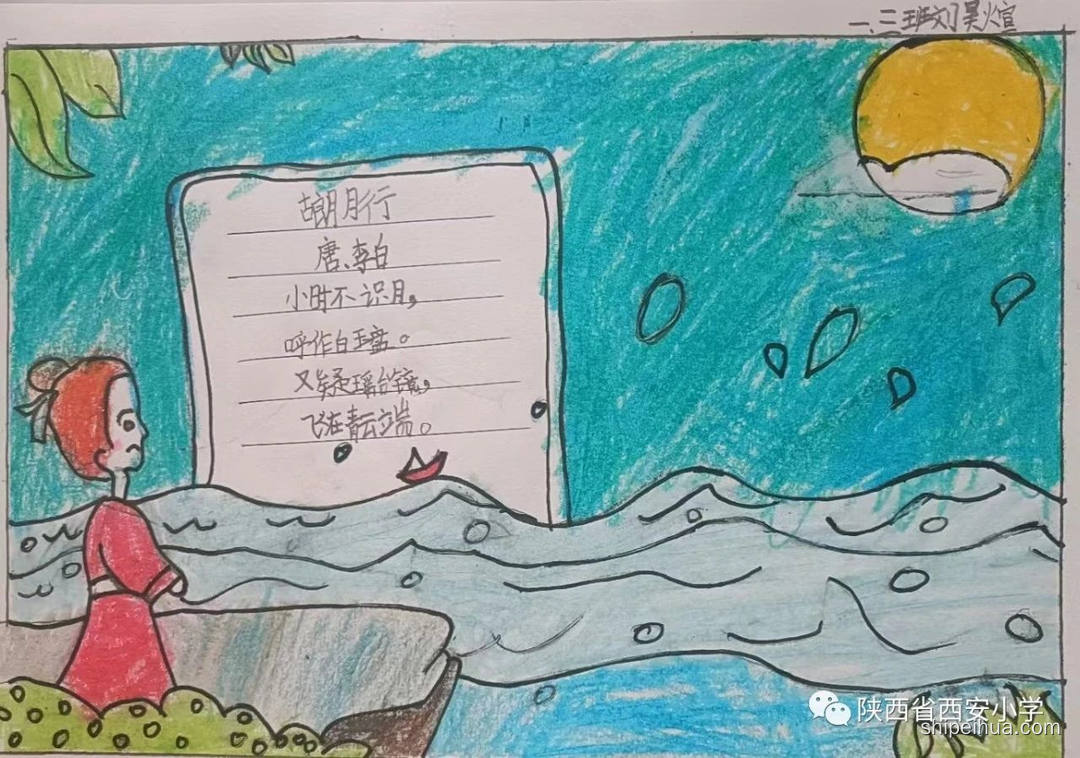 一、三班刘昊煊
古朗月行
唐、李白
小时不识月，
呼作白玉盘。
又疑瑶台镜，
飞在青云端。
陕西省西安小学
shipeihua.com